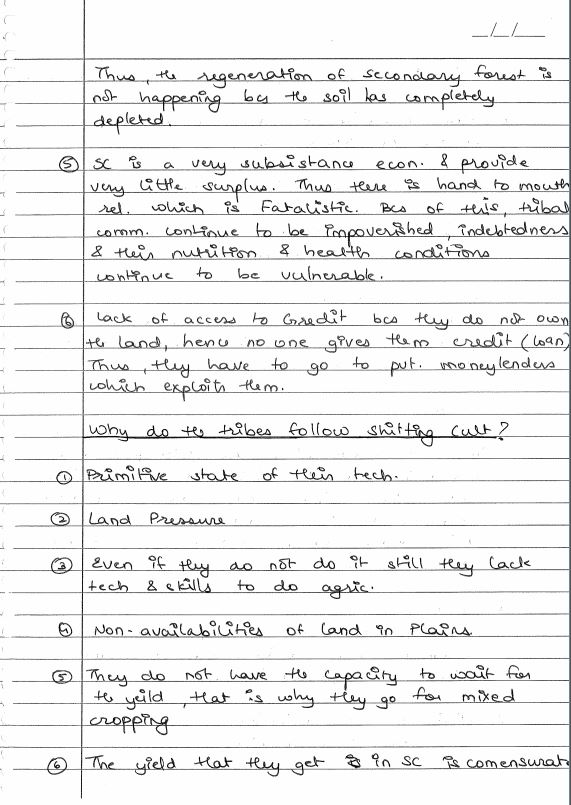 __/__/____
Thus, the regeneration of secondary forest is
not happening bcs the soil has completely
depleted.
⑤ SC is a very subsistance econ. & provide
very little surplus. Thus there is hand to mouth
rel. which is Fatalistic. Bcs of this, tribal
comm. continue to be impoverished, indebtedness
& their nutrition & health conditions
continue to be vulnerable.
⑥ Lack of access to Credit bcs they do not own
the land, hence no one gives them credit (loan)
Thus, they have to go to put. moneylenders
which exploits them.
Why do the tribes follow shifting cult?
① Primitive state of their tech.
② Land Pressure
③ Even if they do not do it still they lack
tech & skills to do agric.
④ Non-availabilities of land in Plains.
⑤ They do not have the capacity to wait for
the yeild, that is why they go for mixed
cropping
⑥ The yield that they get in SC is comensurat